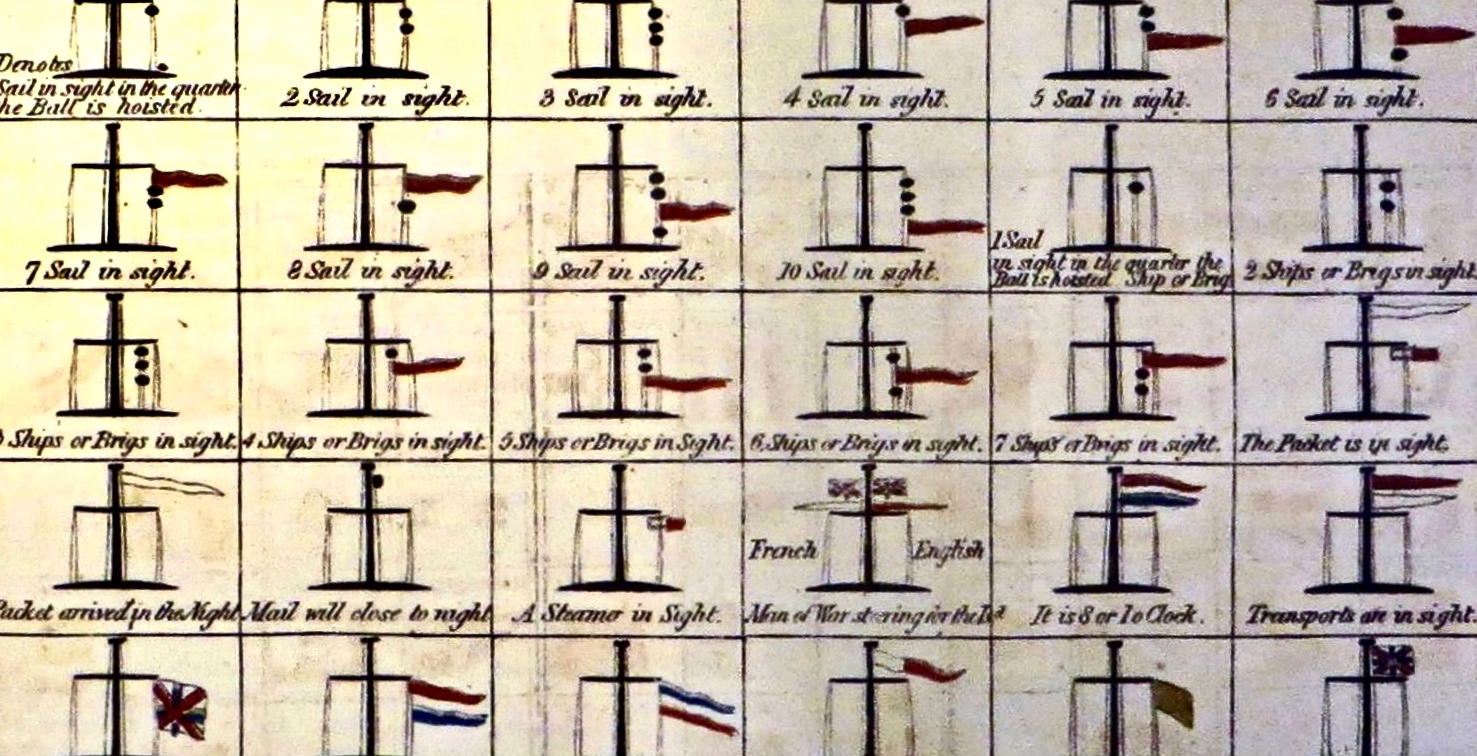 Denotes
Sail in sight in the quarter
he Ball is hoisted.
2 Sail in sight.
3 Sail in sight.
4 Sail in sight.
5 Sail in sight.
6 Sail in sight.
7 Sail in sight.
8 Sail in sight.
9 Sail in sight.
10 Sail in sight.
1 Sail
in sight in the quarter the
Ball is hoisted Ship or Brig
2 Ships or Brigs in sight.
Ships or Brigs in sight.
4 Ships or Brigs in sight.
5 Ships or Brigs in Sight.
6 Ships or Brigs in sight.
7 Ships or Brigs in sight.
The Packet is in sight.
Packet arrived in the Night
Mail will close to night
A Steamer in Sight.
French
English
Man of War steering for the Isd
It is 8 or 1 o Clock.
Transports are in sight.